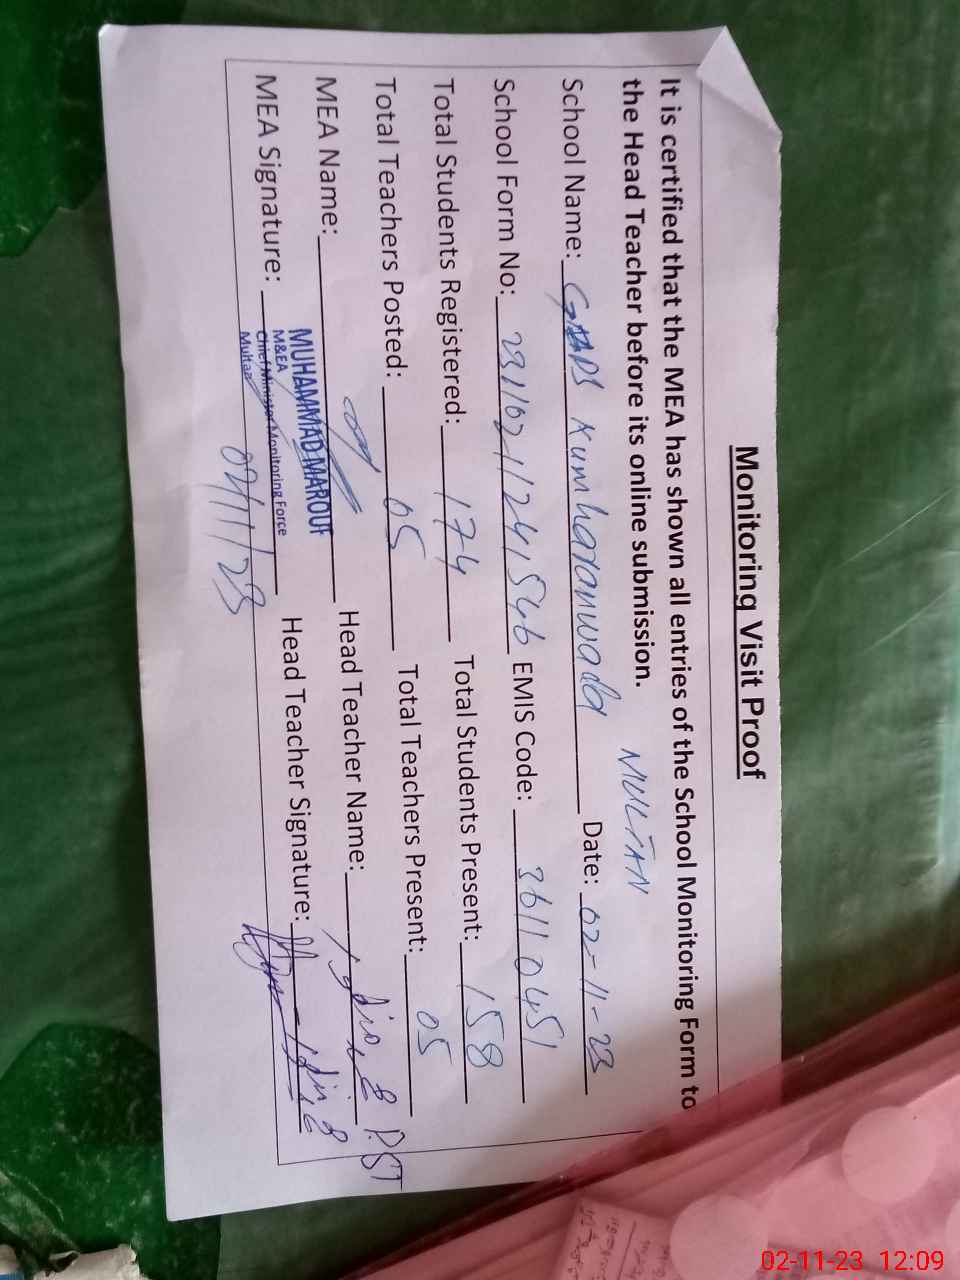 Monitoring Visit Proof
It is certified that the MEA has shown all entries of the School Monitoring Form to
the Head Teacher before its online submission.
MULTAN
School Name: Kumharanwala Date: 02-11-23
School Form No: 23110211241546 EMIS Code: 36110451
Total Students Registered: 174 Total Students Present: 158
Total Teachers Posted: 05 Total Teachers Present: 05
MEA Name: Head Teacher Name: PST
MUHAMMAD MAROUF
M&EA
Chief Minister Monitoring Force
Multan
MEA Signature: Head Teacher Signature:
02/11/23
02-11-23 12:09